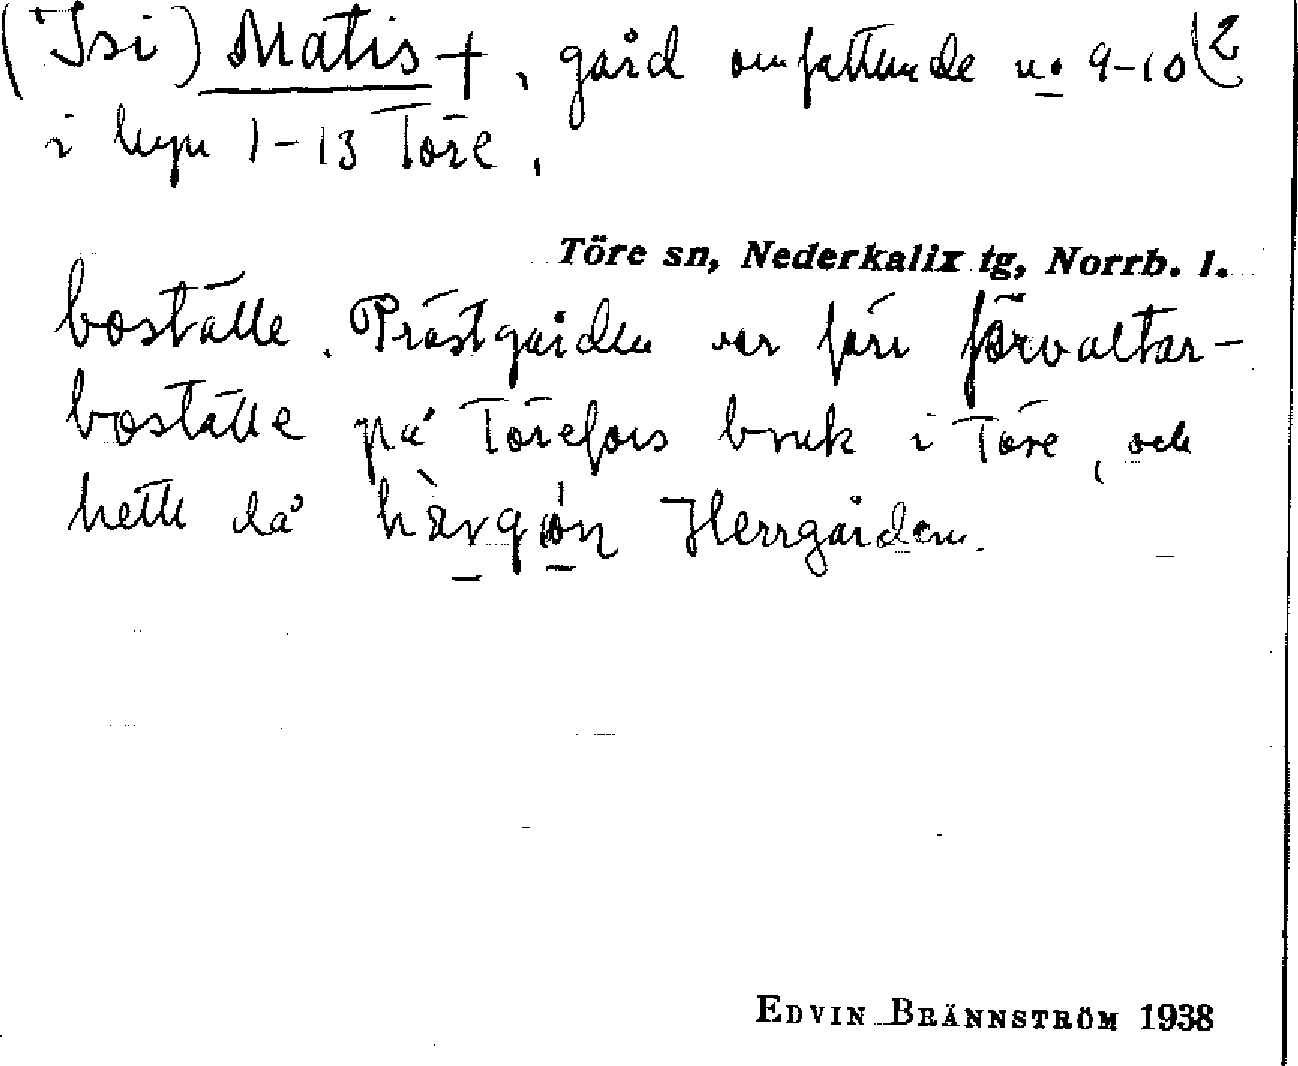 (Isi) Matis +, gård omfattande no 9-10 (2
i byn 1-13 Töre.
Töre sn, Nederkalix tg, Norrb. l.
boställe. Prästgården var förr förvaltar-
boställe på Törefors bruk i Töre, och
hette då Herrgården.
EDVIN BRÄNNSTRÖM 1938